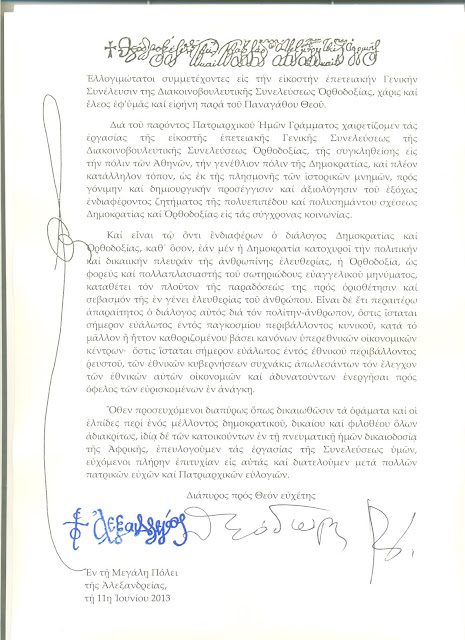 Ἐλλογιμώτατοι συμμετέχοντες εἰς τήν εἰκοστήν ἐπετειακήν Γενικήν
Συνέλευσιν της Διακοινοβουλευτικῆς Συνελεύσεως Ὀρθοδοξίας, χάρις καί
ἔλεος ἐφ'ὑμᾶς καί εἰρήνη παρά τοῦ Παναγάθου Θεοῦ.
Διά τοῦ παρόντος Πατριαρχικοῦ Ἡμῶν Γράμματος χαιρετίζομεν τάς
ἐργασίας τῆς εἰκοστῆς ἐπετειακῆς Γενικῆς Συνελεύσεως τῆς
Διακοινοβουλευτικῆς Συνελεύσεως Ὀρθοδοξίας, τῆς συγκληθείσης εἰς
τήν πόλιν τῶν Ἀθηνῶν, τήν γενέθλιον πόλιν τῆς Δημοκρατίας, καί πλέον
κατάλληλον τόπον, ὡς ἐκ τῆς πλησμονῆς τῶν ἱστορικῶν μνημῶν, πρός
γόνιμην καί δημιουργικήν προσέγγισιν καί ἀξιολόγησιν τοῦ ἐξόχως
ἐνδιαφέροντος ζητήματος τῆς πολυεπιπέδου καί πολυσημάντου σχέσεως
Δημοκρατίας καί Ὀρθοδοξίας εἰς τάς σύγχρονας κοινωνίας.
Καί εἶναι τῷ ὄντι ἐνδιαφέρων ὁ διάλογος Δημοκρατίας καί
Ὀρθοδοξίας, καθ' ὅσον, ἐάν μέν ἡ Δημοκρατία κατοχυροῖ τήν πολιτικήν
καί δικαιικήν πλευράν τῆς ἀνθρωπίνης ἐλευθερίας, ἡ Ὀρθοδοξία, ὡς
φορεύς καί πολλαπλασιαστής τοῦ σωτηριώδους εὐαγγελικοῦ μηνύματος,
καταθέτει τόν πλοῦτον τῆς παραδόσεώς της πρός ὁριοθέτησιν καί
σεβασμόν τῆς ἐν γένει ἐλευθερίας τοῦ ἀνθρώπου. Εἶναι δέ ἔτι περαιτέρω
ἀπαραίτητος ὁ διάλογος αὐτός διά τόν πολίτην-ἄνθρωπον, ὅστις ἵσταται
σήμερον εὐάλωτος ἐντός παγκοσμίου περιβάλλοντος κυνικοῦ, κατά τό
μᾶλλον ἤ ἧττον καθοριζομένου βάσει κανόνων ὑπερεθνικῶν οἰκονομικῶν
κέντρων· ὅστις ἵσταται σήμερον εὐάλωτος ἐντός ἐθνικοῦ περιβάλλοντος
ρευστοῦ, τῶν ἐθνικῶν κυβερνήσεων συχνάκις ἀπωλεσάντων τόν ἔλεγχον
τῶν ἐθνικῶν αὐτῶν οἰκονομιῶν καί ἀδυνατούντων ἐνεργῆσαι πρός
ὄφελος τῶν εὑρισκομένων ἐν ἀνάγκῃ.
Ὅθεν προσευχόμενοι διαπύρως ὅπως δικαιωθῶσιν τά ὁράματα καί οἱ
ἐλπίδες περί ἑνός μέλλοντος δημοκρατικοῦ, δικαίου καί φιλοθέου ὅλων
ἀδιακρίτως, ἰδίᾳ δέ τῶν κατοικούντων ἐν τῇ πνευματικῇ ἡμῶν δικαιοδοσίᾳ
τῆς Ἀφρικῆς, ἐπευλογοῦμεν τάς ἐργασίας τῆς Συνελεύσεως ὑμῶν,
εὐχόμενοι πλήρην ἐπιτυχίαν εἰς αὐτάς καί διατελοῦμεν μετά πολλῶν
πατρικῶν εὐχῶν καί Πατριαρχικῶν εὐλογιῶν.
Διάπυρος πρός Θεόν εὐχέτης
Ἐν τῇ Μεγάλῃ Πόλει
τῆς Ἀλεξανδρείας,
τῇ 11ῃ Ἰουνίου 2013